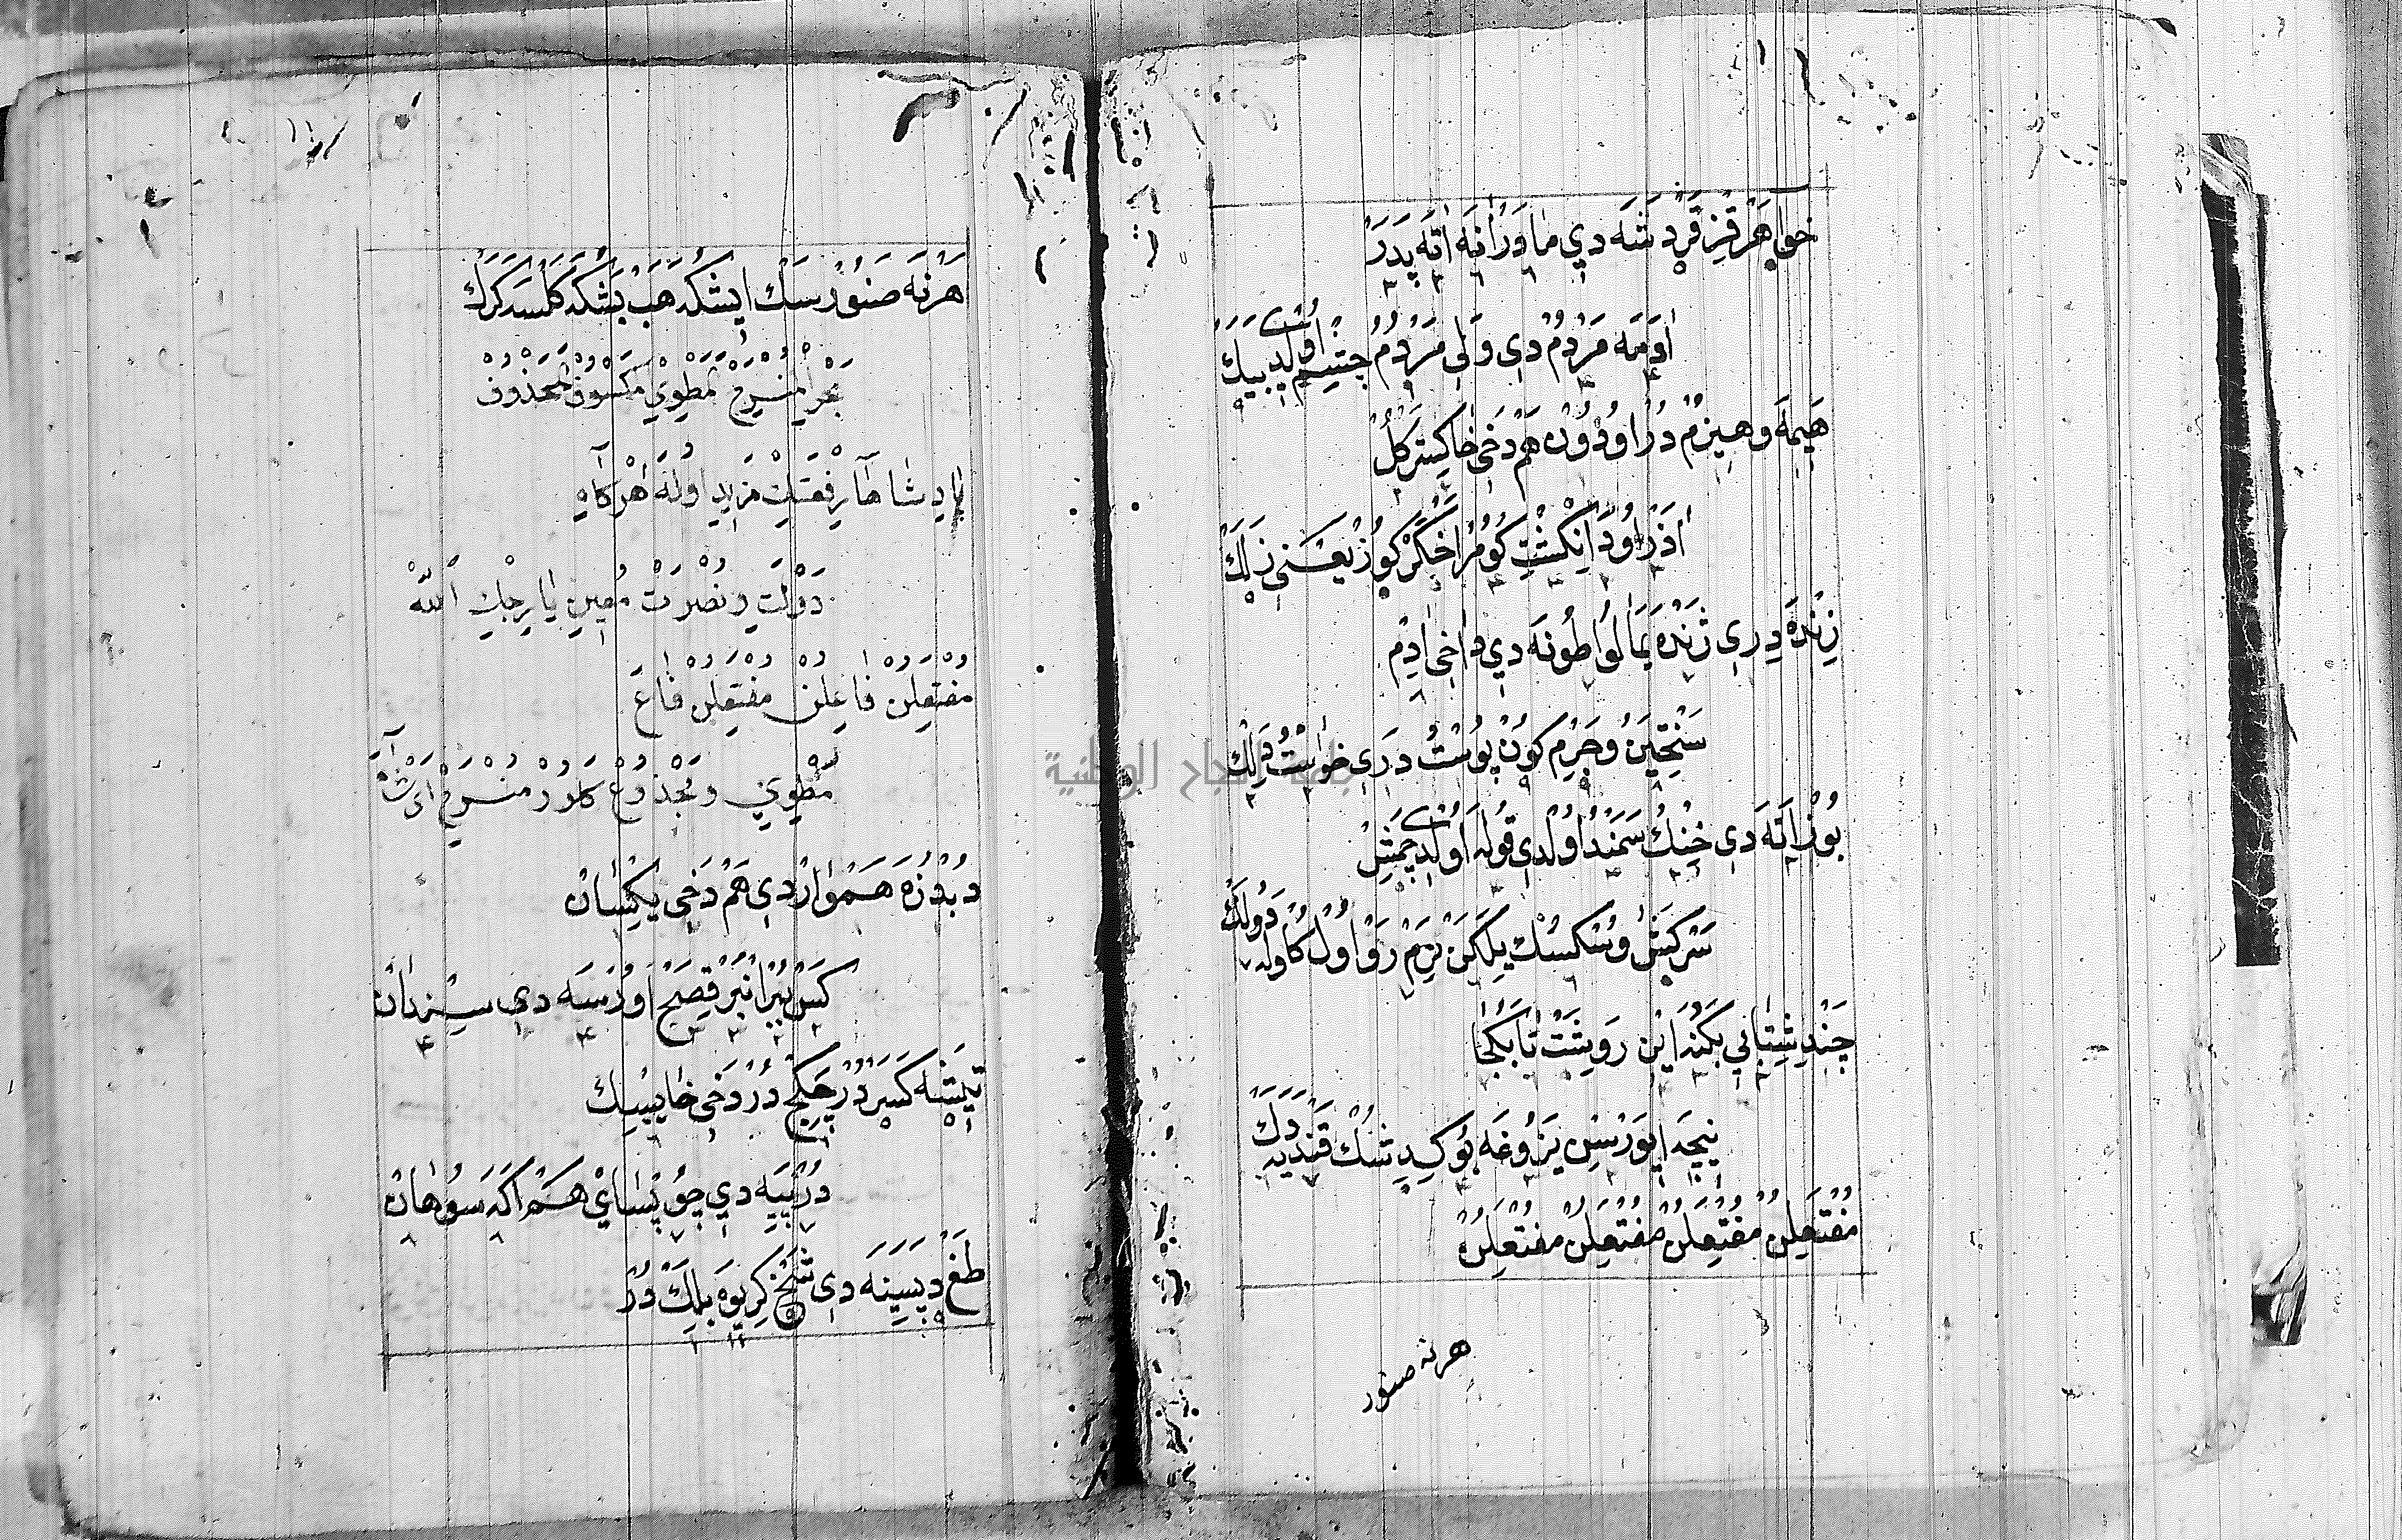 خواهر قز قردشه دي مادر انه اته پدر
اومه مردم دي ولي مردم چشم اولدي ببك
هيمه و هيزم در اودون هم دخي خاكستر كل
آذر اود انكشت كومر اخكر كوز يعني
زنده درى ژنده يمالو اطونه دي داخي ادم
سنجين و جرم كون پوست درى خواست
بوز اته دي خنك سمند اولدي قوله اولدي
سركش و سكسك يلكن نرم رو اول كاوله
چند شتابي بكند اين رويشت تا بكجا
نيجه اپورسن يزوغه بو كدشك قنديه دك
مفتعلن مفتعلن مفتعلن مفتعلن
هرنه صنور
هرنه صنورسك ايشكه هب بشكه كلسه كرك
بحر منسرح مطوي مكسوف محذوف
پادشاها رفعتك مزيد اوله هر كاه
دولت و نصرت معين ياريجك الله
مفتعلن فاعلن مفتعلن فاع
مطوي و مجذوع كلور منسرح اى شاه
دبدوزه هموار دي هم دخي يكسان
دي سندان
تيشه كسر در چكيج در دخي خايسك
درپيه دي چوپساي هم اكه سوهان
طغ د پسينه دي شخ كريوه بلك در